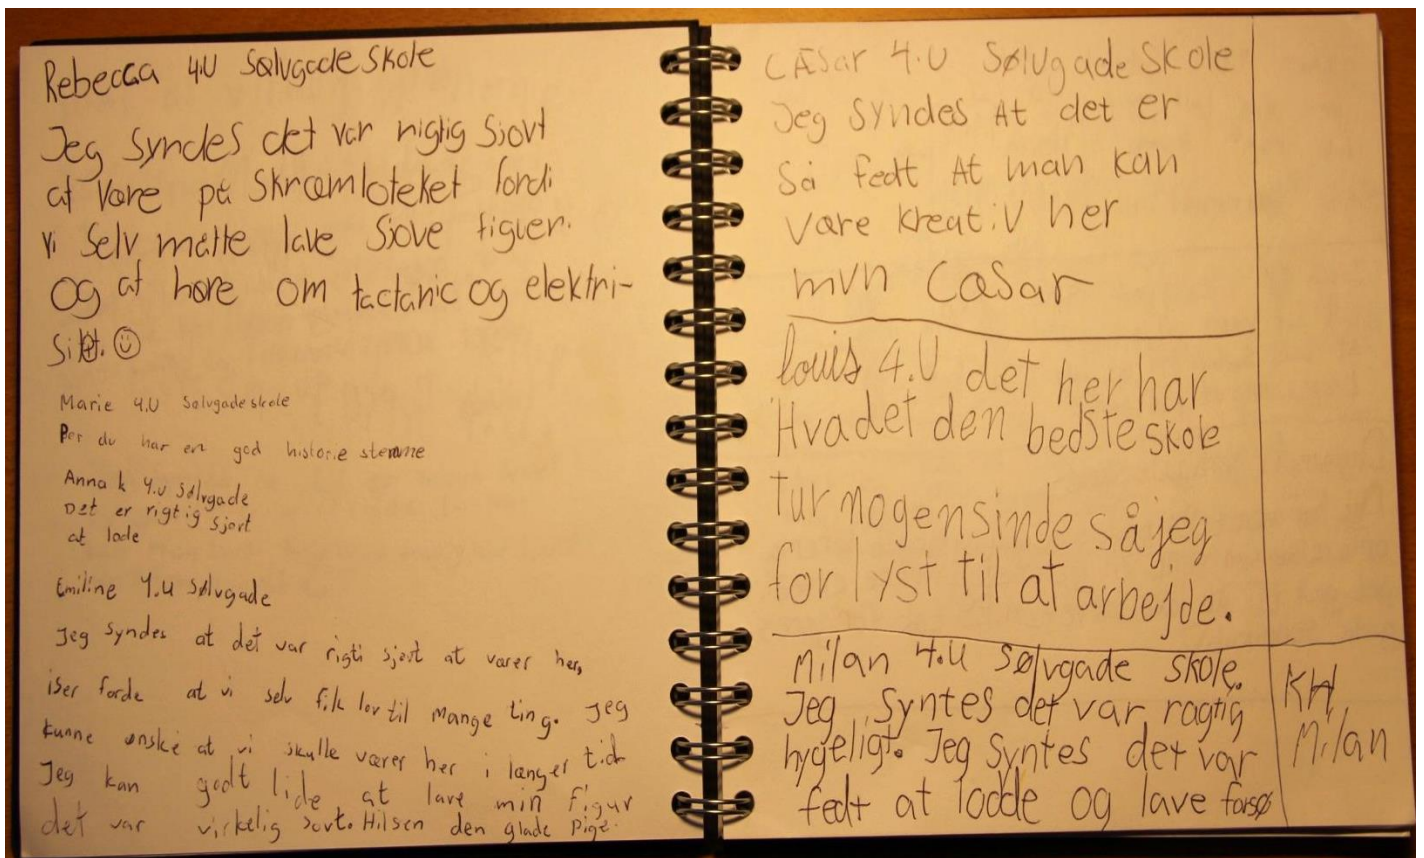 Rebecca 4.U Sølvgade Skole
Jeg Syndes det var rigtig Sjovt
at Være på Skræmloteket fordi
vi Selv måtte lave Sjove figuer.
Og at høre om tactanic og elektri-
Sitet. ☺
Marie 4.U Sølvgade skole
Per du har en god historie stemme
Anna k 4.U Sølvgade
Det er rigtig sjovt
at lode
Emiline 4.U Sølvgade
Jeg Syndes at det var rigti sjovt at værer her,
iser forde at vi selv fik lov til mange ting. Jeg
kunne ønske at vi skulle værer her i længer tid
Jeg kan godt lide at lave min figur
det var virkelig sovt. Hilsen den glade pige.
CÆSar 4.U Sølvgade Skole
Jeg SYndes At det er
Så fedt At man kan
være kreativ her
mvh Cæsar
louis 4.U det her har
Hvadet den bedste skole
tur nogensinde så jeg
for lyst til at arbejde.
Milan 4.U Sølvgade skole.
Jeg Syntes det var ragtig
hygeligt. Jeg Syntes det var
fedt at lodde og lave forsø
KH,
Milan